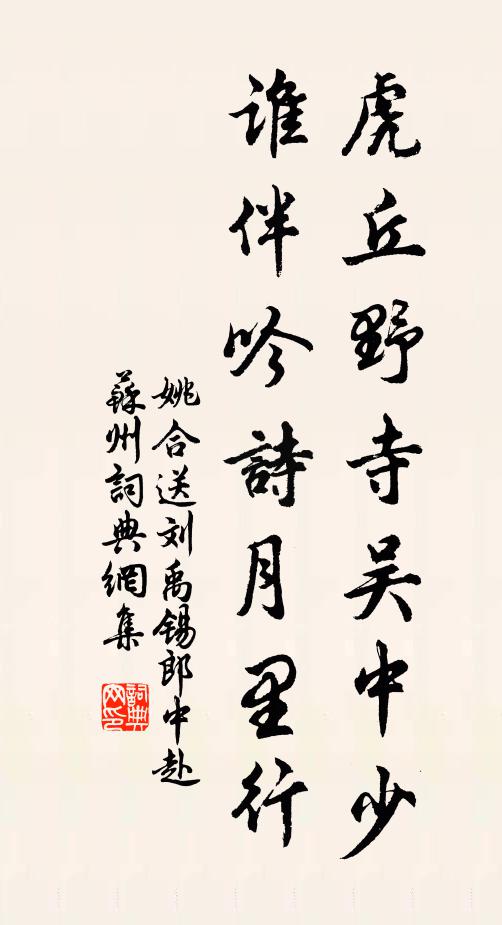 虎丘野寺吴中少
谁伴吟詩月里行
姚合送刘禹锡郎中赴
蘇州詞典網集
詞典
网印